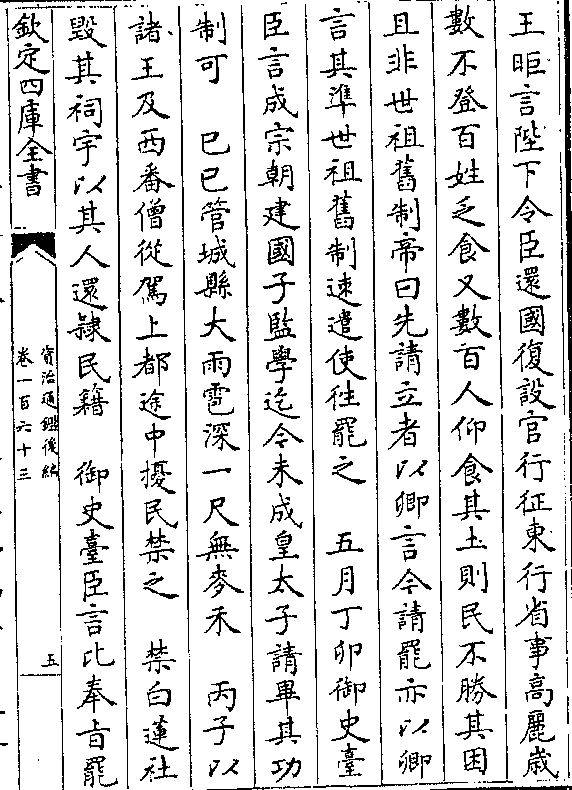 王昛言陛下令臣還國復設官行征東行省事高麗歲
數不登百姓乏食又數百人仰食其土則民不勝其困
且非世祖舊制帝曰先請立者以卿言今請罷亦以卿
言其準世祖舊制速遣使往罷之　五月丁卯御史臺
臣言成宗朝建國子監學迄今未成皇太子請畢其功
制可　己巳管城縣大雨雹深一尺無麥禾　丙子以
諸王及西番僧從駕上都途中擾民禁之　禁白蓮社
毀其祠宇以其人還隸民籍　御史臺臣言比奉旨罷
欽定四庫全書
資治通鑑後編
卷一百六十三
五